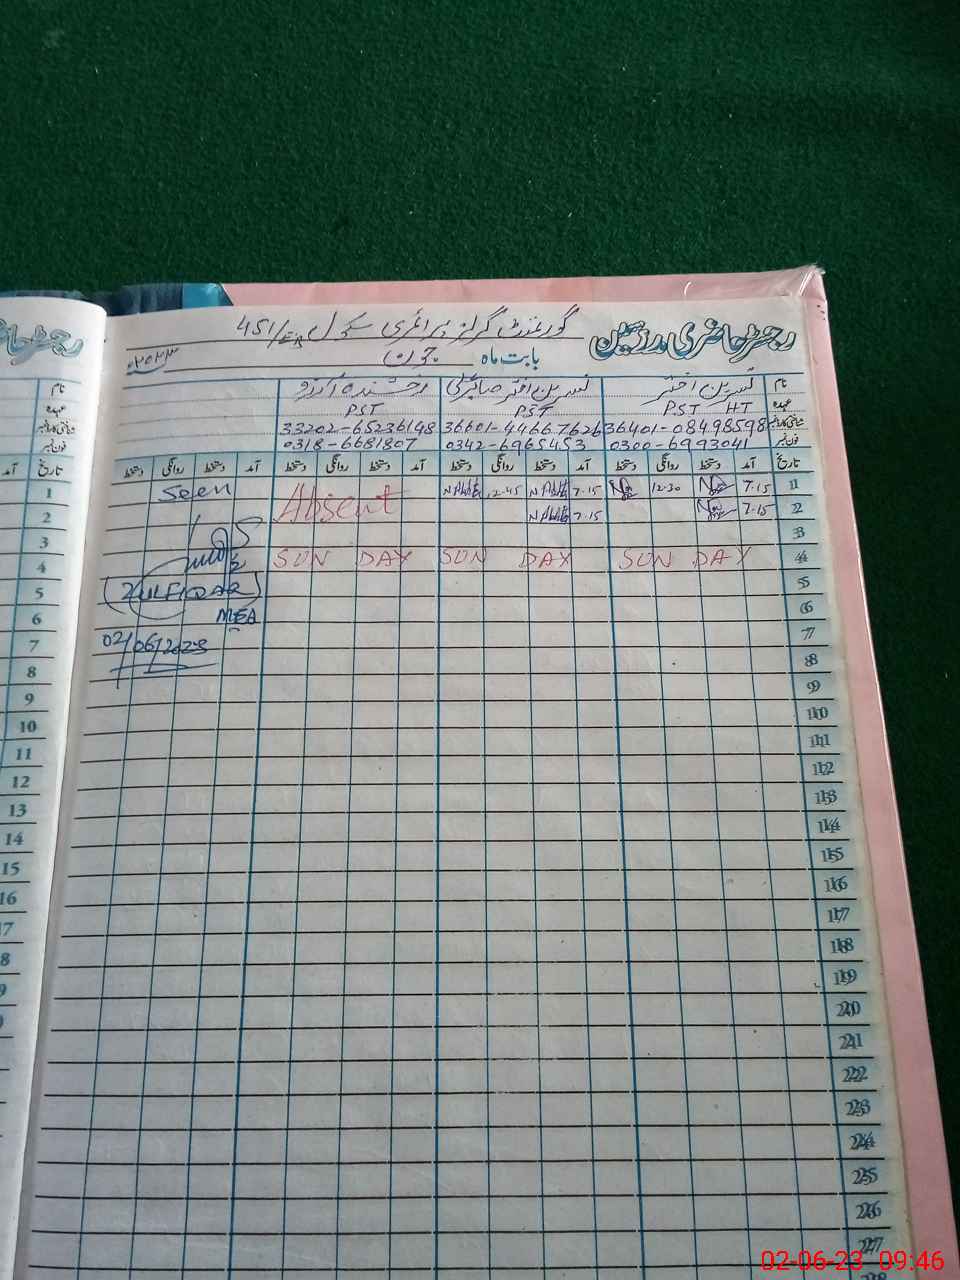 رجسٹر حاضری مدرسین گورنمنٹ گرلز پرائمری سکول 451/EB
بابت ماہ جون ۲۰۲۳
نام نسرین اختر نسرین اختر رخشندہ
عہدہ PST HT PST PST
شناختی کارڈ نمبر 36401-08498598 36601-44667626 33202-65236148
فون نمبر 0300-6993041 0342-6965453 0318-6681807
تاریخ آمد دستخط روانگی دستخط آمد دستخط روانگی دستخط آمد دستخط روانگی دستخط آمد دستخط روانگی دستخط
1 7.15 12.30 7.15 12.45 Absent Seen
2 7.15 7.15
3
4 SUN DAY SUN DAY SUN DAY
5 (ZULFIQAR)
6 MEA
7 02/06/2023
8
9
10
11
12
13
14
15
16
17
18
19
20
21
22
23
24
25
26
27
28
رجسٹر حاضری
نام
عہدہ
شناختی کارڈ نمبر
فون نمبر
تاریخ آمد
1
2
3
4
5
6
7
8
9
10
11
12
13
14
15
16
17
8
9
02-06-23 09:46